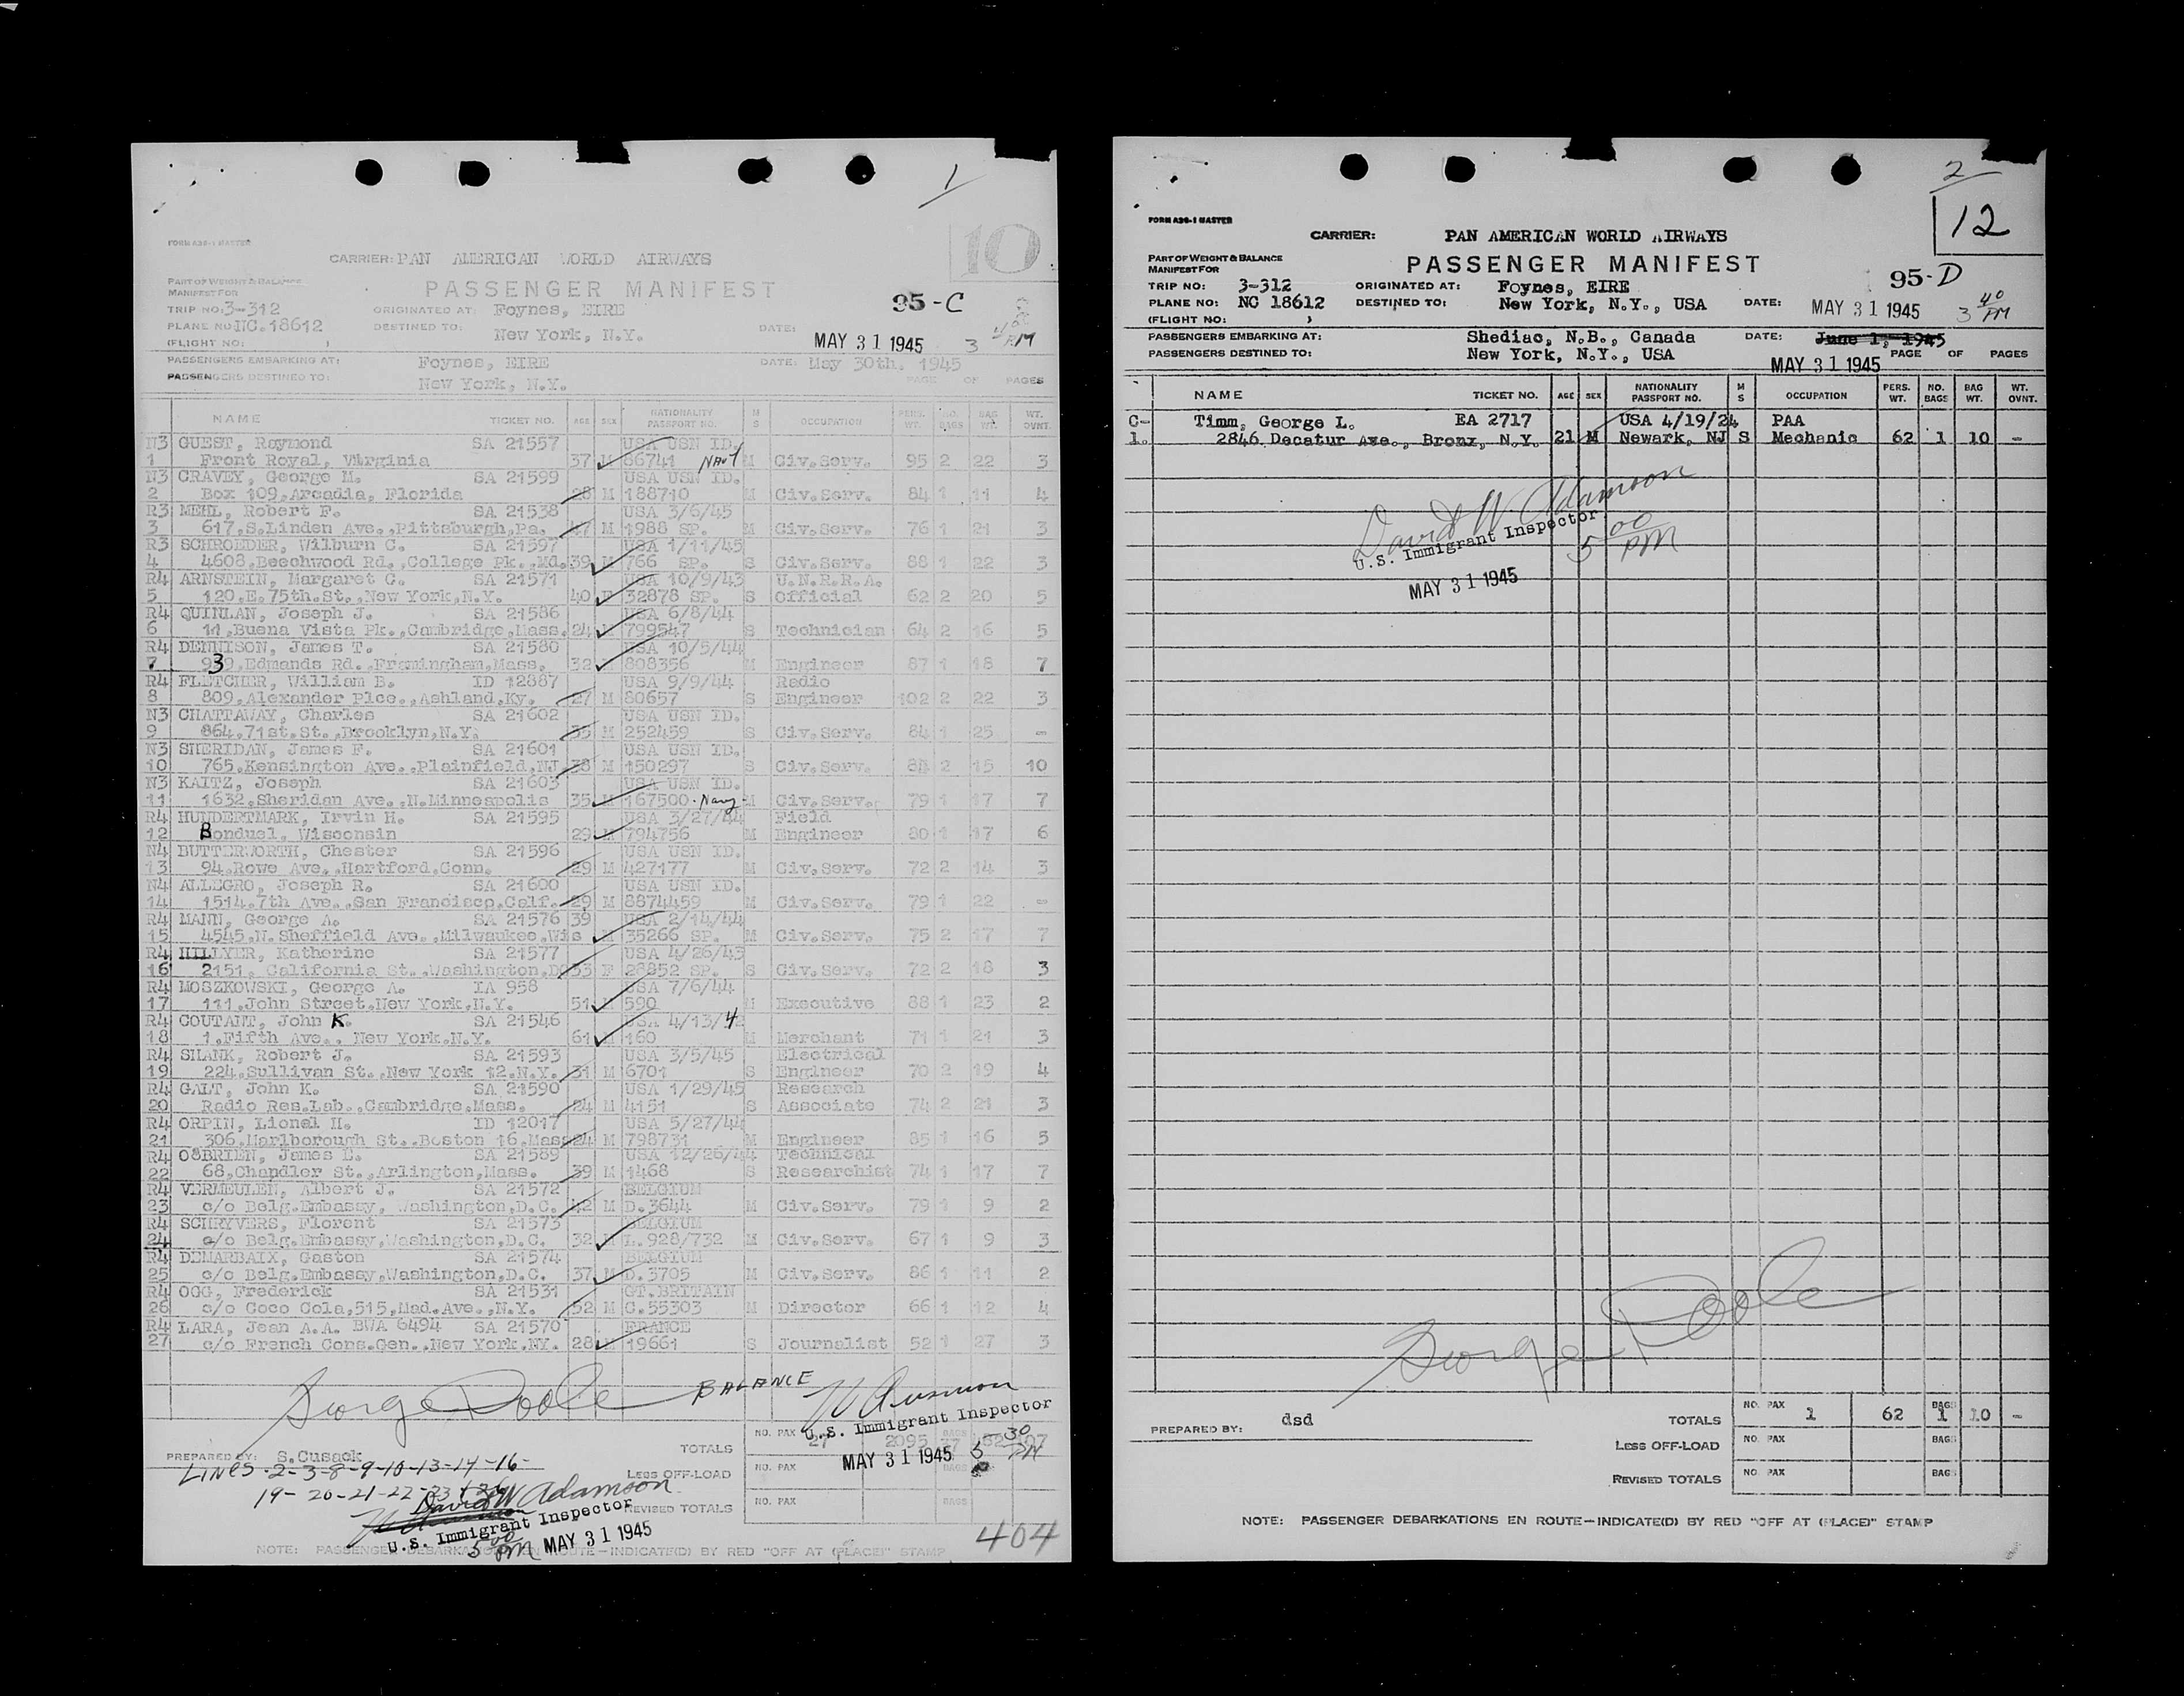 1
FORM A36-1 MASTER
10
CARRIER: PAN AMERICAN WORLD AIRWAYS
PART OF WEIGHT & BALANCE
MANIFEST FOR
PASSENGER MANIFEST
95-C
TRIP NO: 3-312 ORIGINATED AT: Foynes, EIRE
PLANE NO: NC.18612 DESTINED TO: New York, N.Y. DATE: MAY 31 1945 3 40 PM
(FLIGHT NO: )
PASSENGERS EMBARKING AT: Foynes, EIRE DATE: May 30th. 1945
PASSENGERS DESTINED TO: New York, N.Y. PAGE OF PAGES
NAME TICKET NO. AGE SEX NATIONALITY PASSPORT NO. M S OCCUPATION PERS. WT. NO. BAGS BAG WT. WT. OVNT.
N3 GUEST, Raymond SA 21557 USA USN ID.
1 Front Royal, Virginia 37 M 86741 M Civ.Serv. 95 2 22 3
N3 CRAVEY, George M. SA 21599 USA USN ID.
2 Box 109,Arcadia, Florida 28 M 188710 M Civ.Serv. 84 1 11 4
R3 MEHL, Robert F. SA 21538 USA 3/6/45
3 617,S.Linden Ave.,Pittsburgh,Pa. 47 M 1988 SP. M Civ.Serv. 76 1 21 3
R3 SCHROEDER, Wilburn C. SA 21597 USA 1/11/45
4 4608,Beechwood Rd.,College Pk.,Md. 39 M 766 SP. S Civ.Serv. 88 1 22 3
R4 ARNSTEIN, Margaret G. SA 21571 USA 10/9/43 U.N.R.R.A.
5 120,E.75th.St.,New York,N.Y. 40 F 32878 SP. S Official 62 2 20 5
R4 QUINLAN, Joseph J. SA 21586 USA 6/8/44
6 11,Buena Vista Pk.,Cambridge,Mass. 24 M 799547 S Technician 64 2 16 5
R4 DENNISON, James T. SA 21580 USA 10/5/44
7 939,Edmands Rd.,Framingham,Mass. 32 M 808356 M Engineer 87 1 18 7
R4 FLETCHER, William B. ID 12887 USA 9/9/44 Radio
8 809,Alexander Plce.,Ashland,Ky. 27 M 80657 S Engineer 102 2 22 3
N3 CHATTAWAY, Charles SA 21602 USA USN ID.
9 864,71st.St.,Brooklyn,N.Y. 35 M 252459 S Civ.Serv. 84 1 25 -
N3 SHERIDAN, James F. SA 21601 USA USN ID.
10 765,Kensington Ave.,Plainfield,NJ 38 M 150297 S Civ.Serv. 88 2 15 10
N3 KAITZ, Joseph SA 21603 USA USN ID.
11 1632,Sheridan Ave.,N.Minneapolis 35 M 167500-Navy M Civ.Serv. 79 1 17 7
R4 HUNDERTMARK, Irvin H. SA 21595 USA 3/27/44 Field
12 Bonduel, Wisconsin 29 M 794756 M Engineer 80 1 17 6
N4 BUTTERWORTH, Chester SA 21596 USA USN ID.
13 94,Rowe Ave.,Hartford,Conn. 29 M 427177 M Civ.Serv. 72 2 14 3
N4 ALLEGRO, Joseph R. SA 21600 USA USN ID.
14 1514,7th Ave.,San Francisco,Calf. 29 M 8874459 M Civ.Serv. 79 1 22 -
R4 MANN, George A. SA 21576 39 USA 2/14/44
15 4545,N.Sheffield Ave.,Milwaukee,Wis M 35266 SP. M Civ.Serv. 75 2 17 7
R4 HILLYER, Katherine SA 21577 USA 4/26/43
16 2151, California St.,Washington,DC 53 F 28852 SP. S Civ.Serv. 72 2 18 3
R4 MOSZKOWSKI, George A. IA 958 USA 7/6/44
17 111,John Street,New York,N.Y. 51 M 590 M Executive 88 1 23 2
R4 COUTANT, John K. SA 21546 USA 4/13/42
18 1,Fifth Ave., New York,N.Y. 61 M 160 M Merchant 71 1 21 3
R4 SHANK, Robert J. SA 21593 USA 3/5/45 Electrical
19 224,Sullivan St.,New York 12,N.Y. 31 M 6701 S Engineer 70 2 19 4
R4 GALT, John K. SA 21590 USA 1/29/45 Research
20 Radio Res.Lab.,Cambridge,Mass. 24 M 4151 S Associate 74 2 21 3
R4 ORPIN, Lionel H. ID 12017 USA 5/27/44
21 306,Marlborough St.,Boston 16,Mass 24 M 798731 M Engineer 85 1 16 5
R4 O'BRIEN, James E. SA 21589 USA 12/26/44 Technical
22 68,Chandler St.,Arlington,Mass. 39 M 1468 S Researchist 74 1 17 7
R4 VERMEULEN, Albert J. SA 21572 BELGIUM
23 c/o Belg.Embassy, Washington,D.C. 42 M D.3644 M Civ.Serv. 79 1 9 2
R4 SCHRYVERS, Florent SA 21573 BELGIUM
24 c/o Belg.Embassy,Washington,D.C. 32 M L.928/732 M Civ.Serv. 67 1 9 3
R4 DEMARBAIX, Gaston SA 21574 BELGIUM
25 c/o Belg.Embassy,Washington,D.C. 37 M D.3705 M Civ.Serv. 86 1 11 2
R4 OGG, Frederick SA 21531 GT.BRITAIN
26 c/o Coco Cola,515,Mad.Ave.,N.Y. 52 M C.55303 M Director 66 1 12 4
R4 LARA, Jean A.A. BWA 6494 SA 21570 FRANCE
27 c/o French Cons.Gen.,New York,NY. 28 M 19661 S Journalist 52 1 27 3
George Poole BALANCE
U.S. Immigrant Inspector
PREPARED BY: S.Cusack TOTALS NO. PAX 27 2095 BAGS
MAY 31 1945 5 30 PM
LINES-2-3-8-9-10-13-14-16-
19-20-21-22-23 + 26
LESS OFF-LOAD NO. PAX BAGS
David W Adamson
U.S. Immigrant Inspector
REVISED TOTALS NO. PAX BAGS
5 00 PM MAY 31 1945
NOTE: PASSENGER DEBARKATIONS EN ROUTE—INDICATE(D) BY RED "OFF AT (PLACE)" STAMP
404
2
FORM A36-1 MASTER
12
CARRIER: PAN AMERICAN WORLD AIRWAYS
PART OF WEIGHT & BALANCE
MANIFEST FOR
PASSENGER MANIFEST
95-D
TRIP NO: 3-312 ORIGINATED AT: Foynes, EIRE
PLANE NO: NC 18612 DESTINED TO: New York, N.Y., USA DATE: MAY 31 1945 3 40 PM
(FLIGHT NO: )
PASSENGERS EMBARKING AT: Shediac, N.B., Canada DATE: June 1, 1945
PASSENGERS DESTINED TO: New York, N.Y., USA MAY 31 1945 PAGE OF PAGES
NAME TICKET NO. AGE SEX NATIONALITY PASSPORT NO. M S OCCUPATION PERS. WT. NO. BAGS BAG WT. WT. OVNT.
C- Timm, George L. EA 2717 USA 4/19/24 PAA
1. 2846 Decatur Ave., Bronx, N.Y. 21 M Newark, NJ S Mechanic 62 1 10 -
David W. Adamson
U.S. Immigrant Inspector
5 00 PM
MAY 31 1945
George Poole
PREPARED BY: dsd TOTALS NO. PAX 1 62 BAGS 1 10 -
LESS OFF-LOAD NO. PAX BAGS
REVISED TOTALS NO. PAX BAGS
NOTE: PASSENGER DEBARKATIONS EN ROUTE—INDICATE(D) BY RED "OFF AT (PLACE)" STAMP